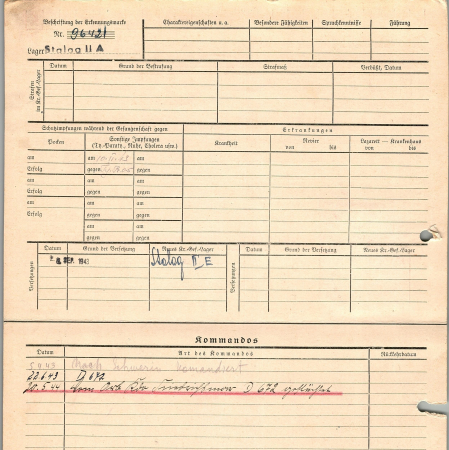 Beschriftung der Erkennungsmarke Charaktereigenschaften u. a. Besondere Fähigkeiten Sprachkenntnisse Führung
Nr. 96421
Lager Stalag II A
Strafen im Kr.-Gef.-Lager Datum Grund der Bestrafung Strafmaß Verbüßt, Datum
Schutzimpfungen während der Gefangenschaft gegen Erkrankungen
Pocken Sonstige Impfungen (Ty.-Paraty., Ruhr, Cholera usw.) Krankheit Revier von bis Lazarett — Krankenhaus von bis
am am am
Erfolg gegen gegen
am am am
Erfolg gegen gegen
am am am
Erfolg gegen gegen
am am
gegen gegen
Versetzungen Datum Grund der Versetzung Neues Kr.-Gef.-Lager Versetzungen Datum Grund der Versetzung Neues Kr.-Gef.-Lager
SEP. 1943 Stalag II E
Kommandos
Datum Art des Kommandos Rückkehrdatum
nach Schwerin kommandiert
22.6.43 D 672
20.5.44 vom Arb. Kdo. D 672 geflüchtet